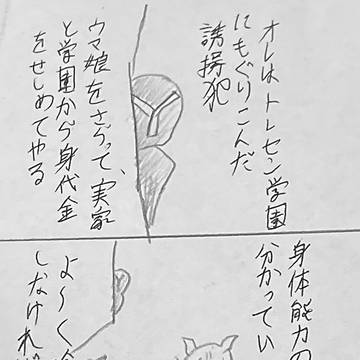 オレはトレセン学園
にもぐりこんだ
誘拐犯
ウマ娘をさらって、実家
と学園から身代金
をせしめてやる
身体能力の
分かってい
よ〜く
しなけれ